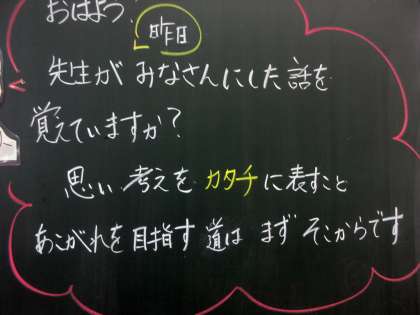 おはよう!
昨日
先生が みなさんにした話を
覚えていますか?
思い 考えを カタチに表すこと
あこがれを目指す道は まず そこからです